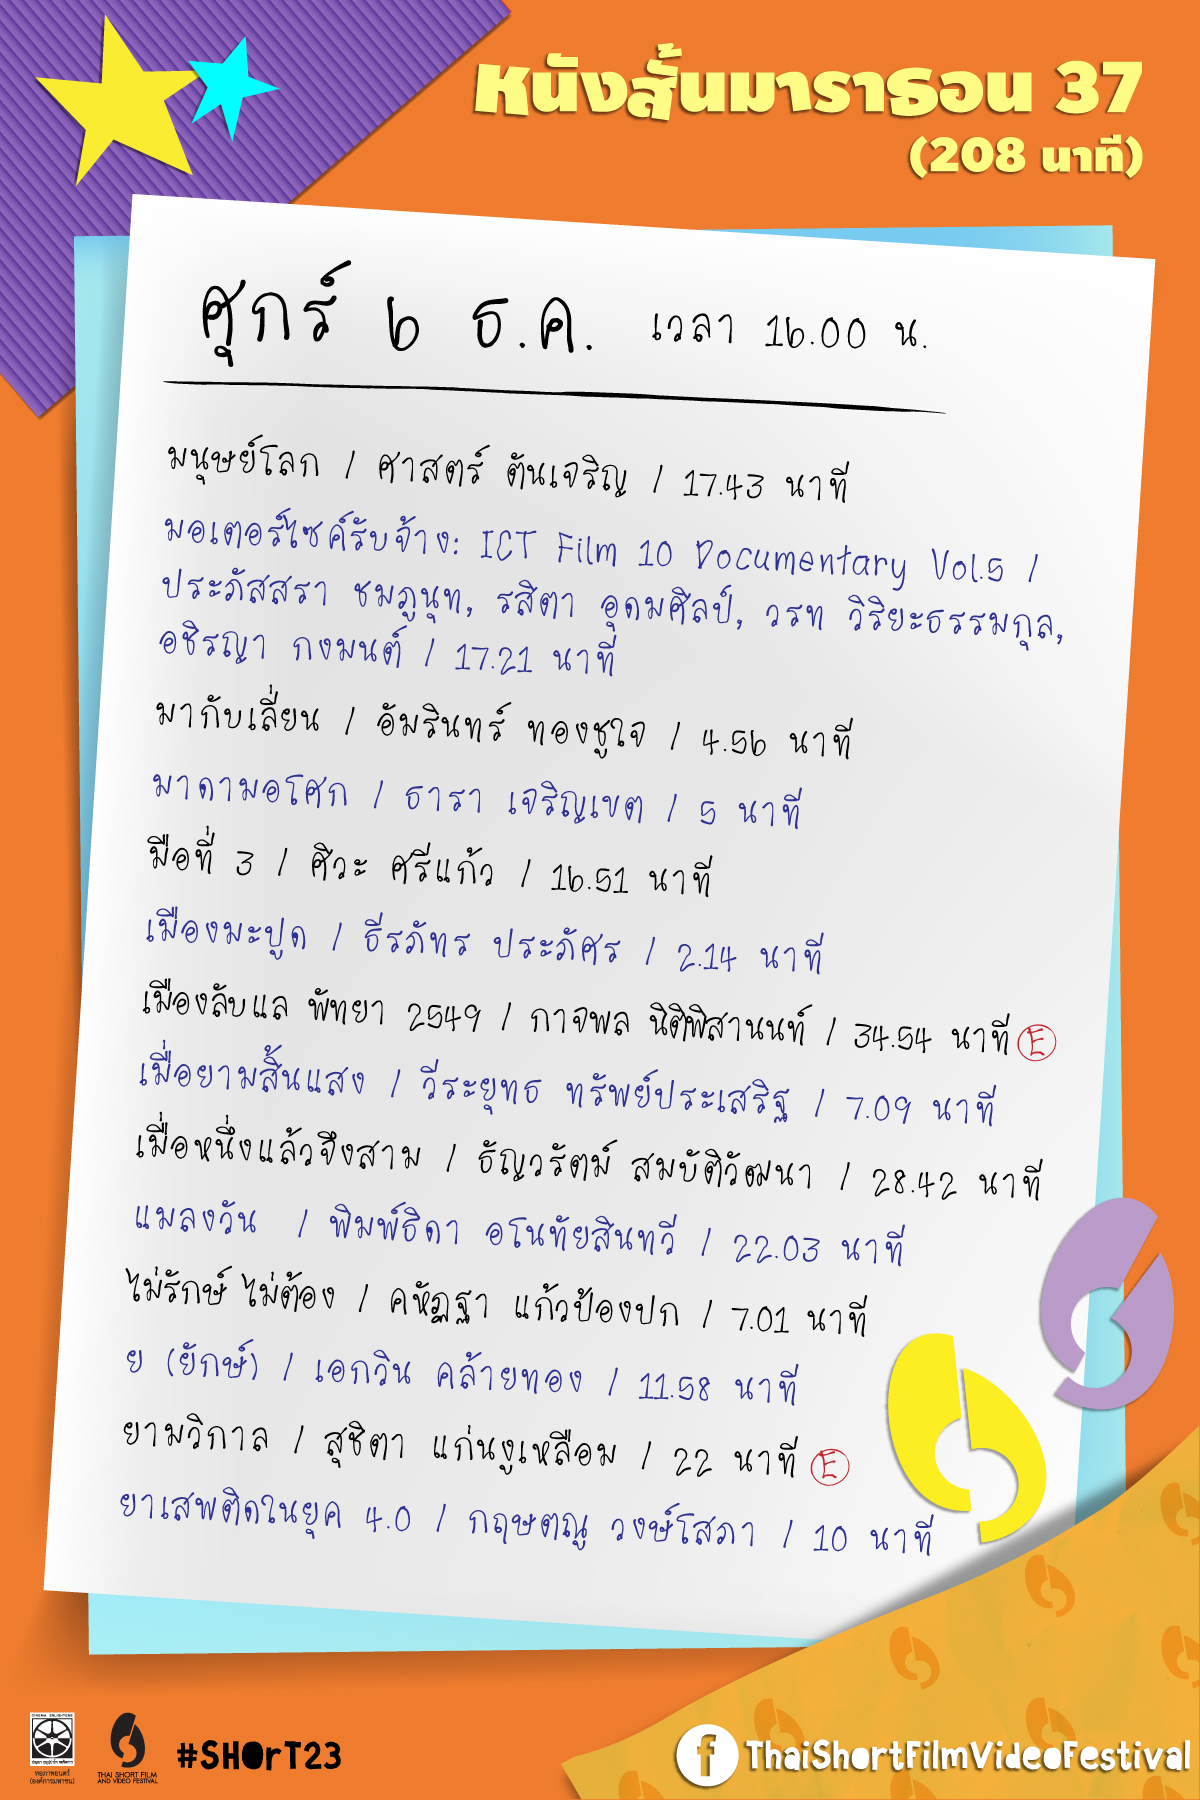 หนังสั้นมาราธอน 37
(208 นาที)
ศุกร์ 6 ธ.ค. เวลา 16.00 น.
มนุษย์โลก / ศาสตร์ ตันเจริญ / 17.43 นาที
มอเตอร์ไซค์รับจ้าง: ICT Film 10 Documentary Vol.5 /
ประภัสสรา ชมภูนุท, รสิตา อุดมศิลป์, วรท วิริยะธรรมกุล,
อชิรญา กงมนต์ / 17.21 นาที
มากับเลี่ยน / อัมรินทร์ ทองชูใจ / 4.56 นาที
มาดามอโศก / ธารา เจริญเขต / 5 นาที
มือที่ 3 / ศิวะ ศรีแก้ว / 16.51 นาที
เมืองมะปูด / ธีรภัทร ประภัศร / 2.14 นาที
เมืองลับแล พัทยา 2549 / กาจพล นิติพิสานนท์ / 34.54 นาที E
เมื่อยามสิ้นแสง / วีระยุทธ ทรัพย์ประเสริฐ / 7.09 นาที
เมื่อหนึ่งแล้วจึงสาม / ธัญวรัตม์ สมบัติวัฒนา / 28.42 นาที
แมลงวัน / พิมพ์ธิดา อโนทัยสินทวี / 22.03 นาที
ไม่รักษ์ ไม่ต้อง / คหัฏฐา แก้วป้องปก / 7.01 นาที
ย (ยักษ์) / เอกวิน คล้ายทอง / 11.58 นาที
ยามวิกาล / สุชิตา แก่นงูเหลือม / 22 นาที E
ยาเสพติดในยุค 4.0 / กฤษตณู วงษ์โสภา / 10 นาที
CINEMA ENLIGHTENS
หอภาพยนตร์
(องค์การมหาชน)
THAI SHORT FILM
AND VIDEO FESTIVAL
#SHOrT23
f ThaiShortFilmVideoFestival